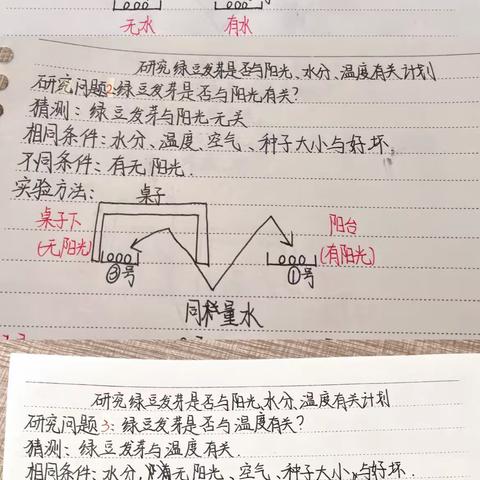 无水 有水
研究绿豆发芽是否与阳光、水分、温度有关计划
研究问题2:绿豆发芽是否与阳光有关?
猜测:绿豆发芽与阳光无关
相同条件:水分、温度、空气、种子大小与好坏.
不同条件:有无阳光.
实验方法:
桌子
桌子下 阳台
(无阳光) (有阳光)
②号 ①号
同样量水
研究绿豆发芽是否与阳光、水分、温度有关计划
研究问题3:绿豆发芽是否与温度有关?
猜测:绿豆发芽与温度有关.
相同条件:水分,有无阳光、空气、种子大小,与好坏.